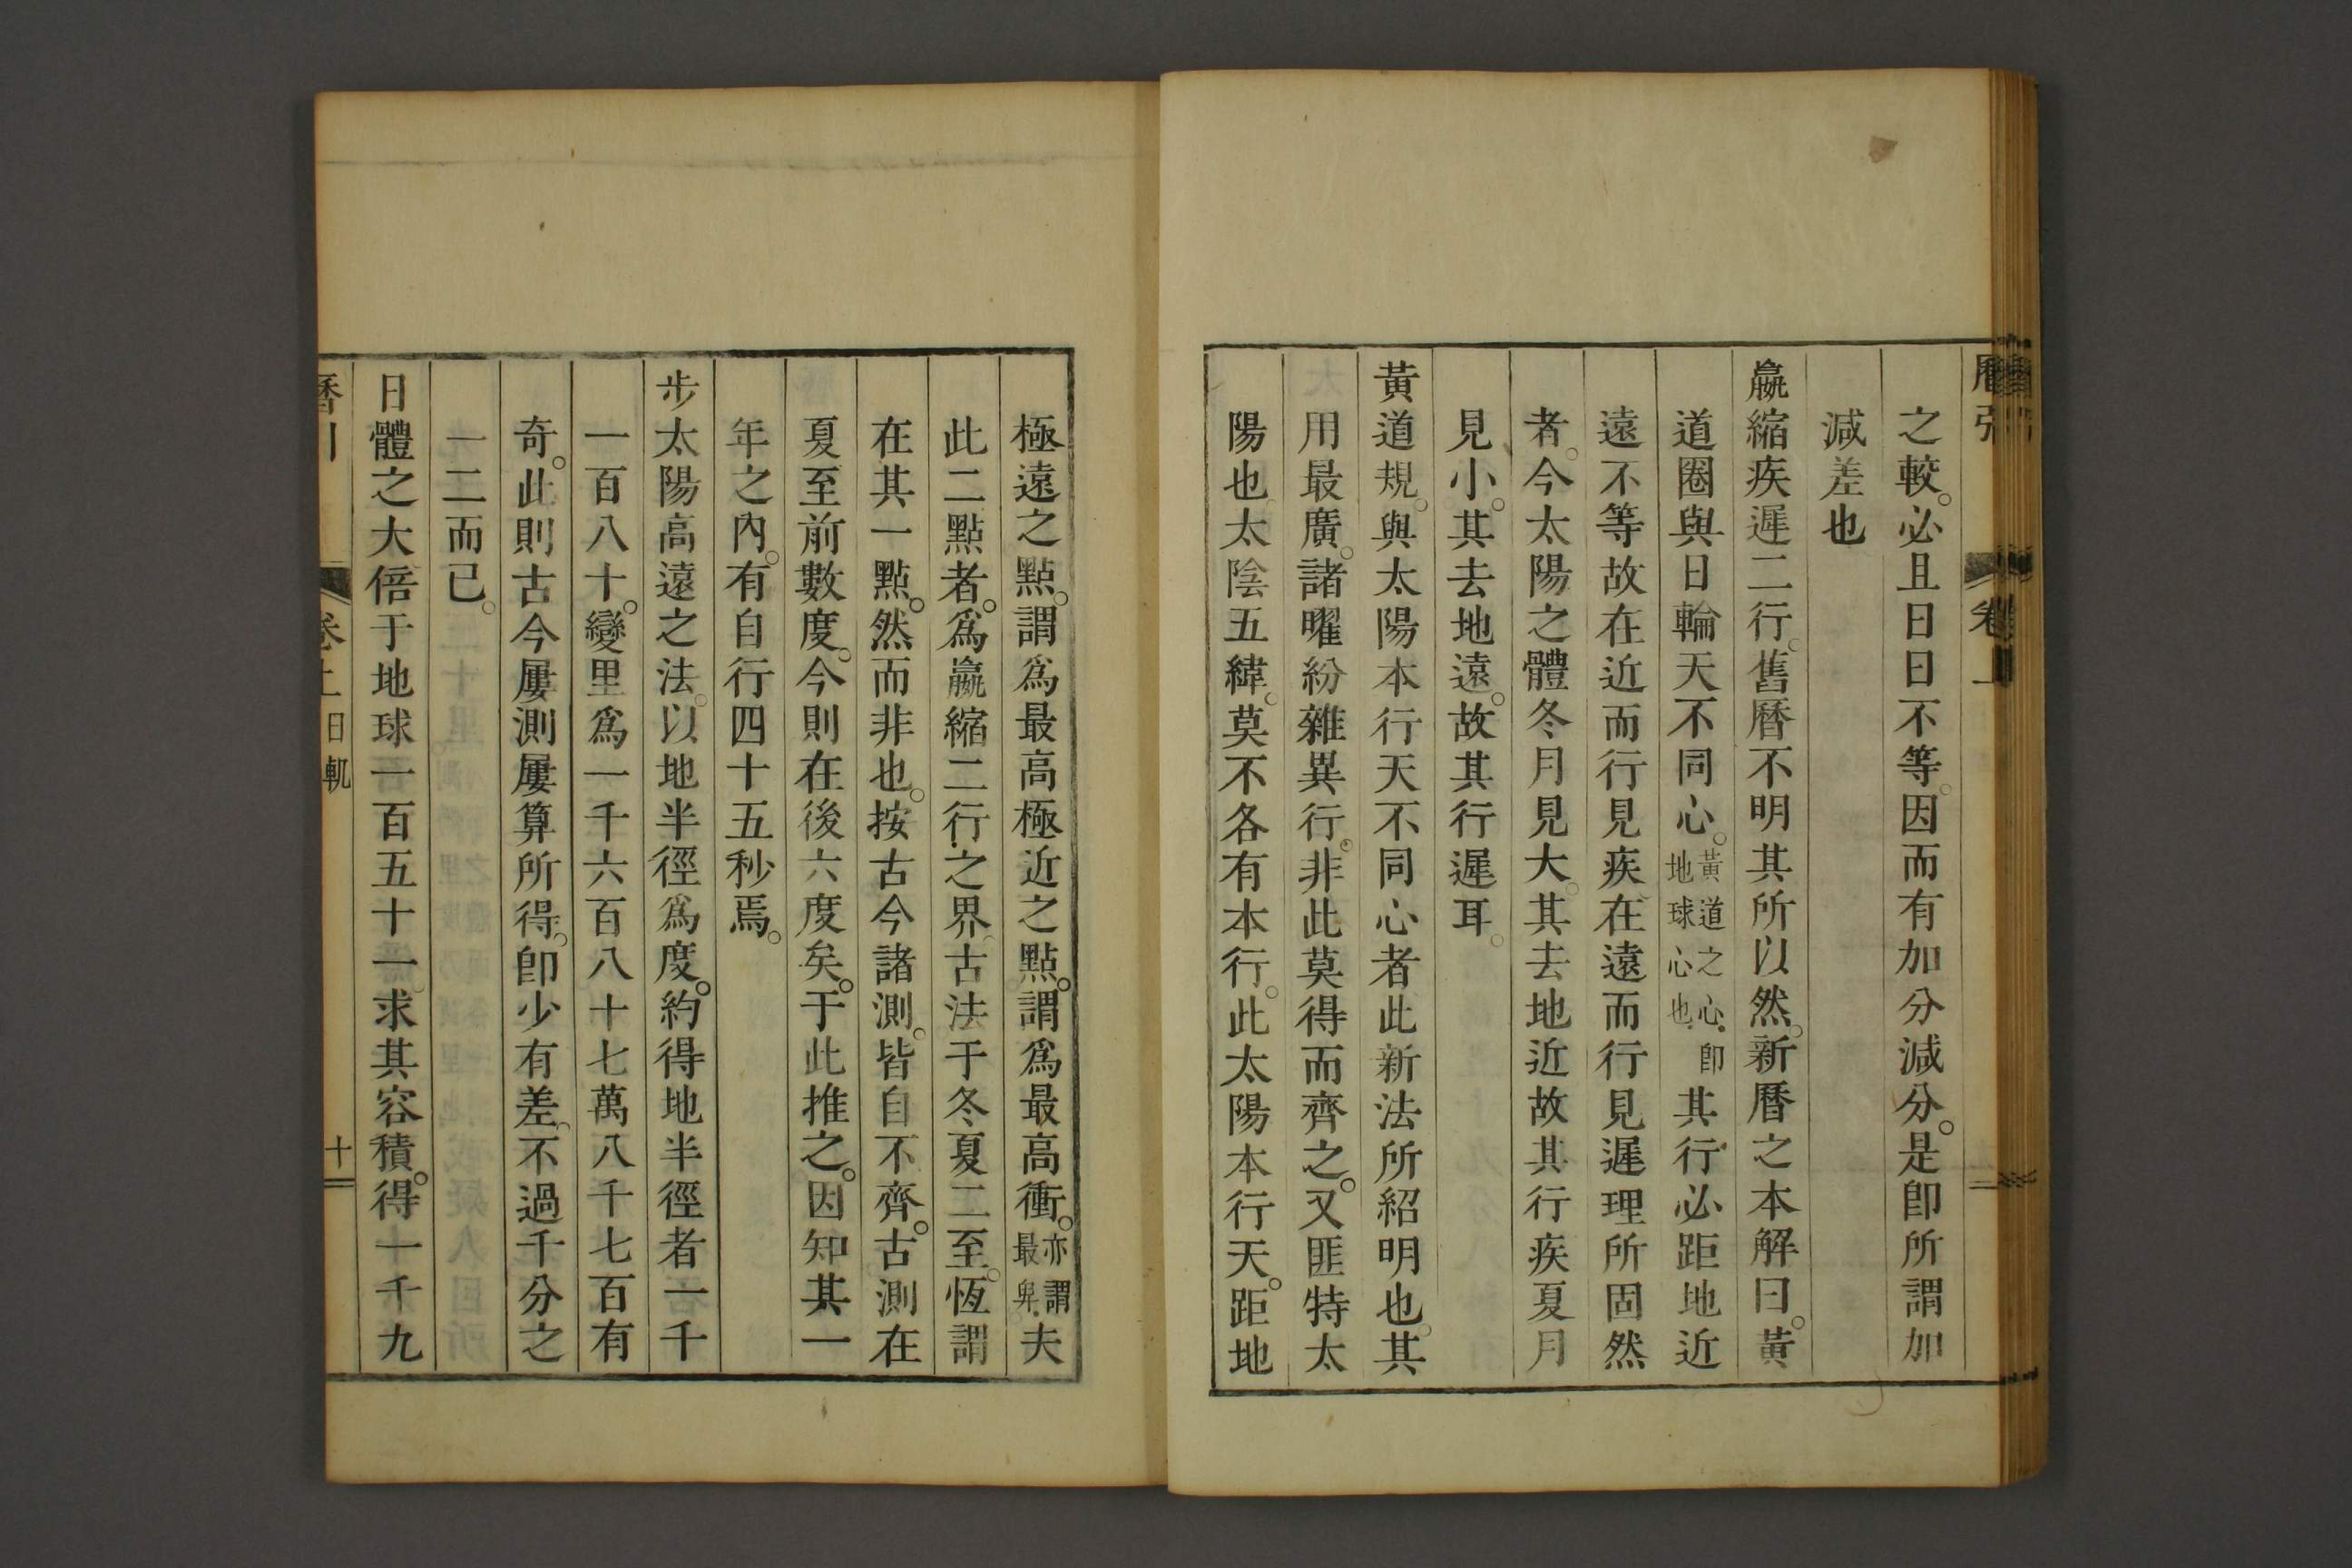 之較。必且日日不等。因而有加分減分。是卽所謂加
減差也
嬴縮疾遲二行。舊曆不明其所以然。新曆之本解曰。黃
道圈與日輪天不同心。黃道之心。卽地球心也。其行必距地近
遠不等故在近而行見疾在遠而行見遲理所固然
者。今太陽之體冬月見大。其去地近故其行疾夏月
見小。其去地遠。故其行遲耳。
黃道規。與太陽本行天不同心者此新法所紹明也。其
用最廣。諸曜紛雜異行。非此莫得而齊之。又匪特太
陽也。太陰五緯。莫不各有本行。此太陽本行天。距地
極遠之點。謂爲最高極近之點。謂爲最高衝。亦謂最𤰞夫
此二點者。爲嬴縮二行之界。古法于冬夏二至。恆謂
在其一點。然而非也。按古今諸測。皆自不齊。古測在
夏至前數度。今則在後六度矣。于此推之。因知其一
年之內。有自行四十五秒焉。
步太陽高遠之法。以地半徑爲度。約得地半徑者一千
一百八十。變里爲一千六百八十七萬八千七百有
奇。此則古今屢測屢算所得。卽少有差。不過千分之
一二而已。
日體之大倍于地球一百五十一。求其容積。得一千九
卷上 日軌 十